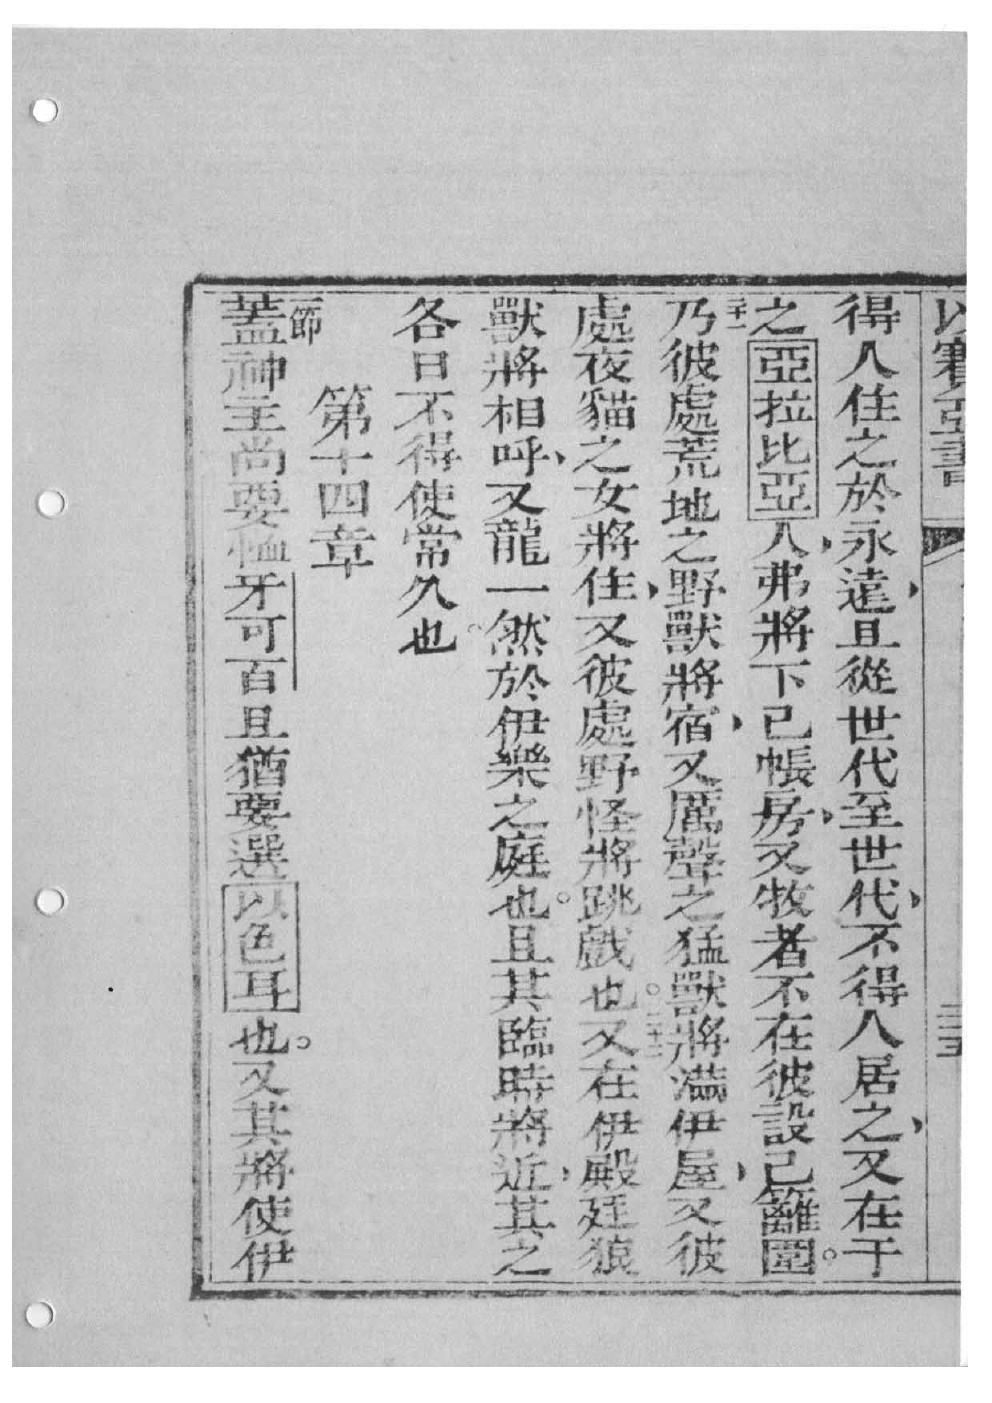 以賽亞書
二三五
得人住之於永遠、且從世代至世代、不得人居之、又在于
之亞拉比亞人、弗將下己帳房、又牧者不在彼設己籬圍。
二十一乃彼處荒地之野獸將宿、又厲聲之猛獸將滿伊屋、又彼
處夜貓之女將住、又彼處野怪將跳戲也。二十二又在伊殿廷狼
獸將相呼、又龍一然於伊樂之庭也。且其臨時將近、其之
各日不得使常久也。
第十四章
一節蓋神主尚要恤牙可百且猶要選以色耳也。又其將使伊